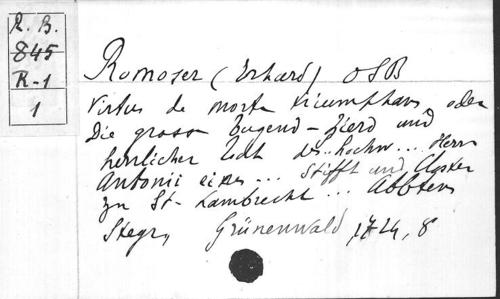 R. B.
845
R-1
1
Romoser (Erhard) OSB
Virtus de morte triumphans, oder
Die grosse Tugend-Zierd und
herrlicher ... des hochw... Herrn
Antonii eines ... Stifft und Closter
zu St. Lambrecht ... Abbten
Steyr, Grünenwald, 1724, 8°